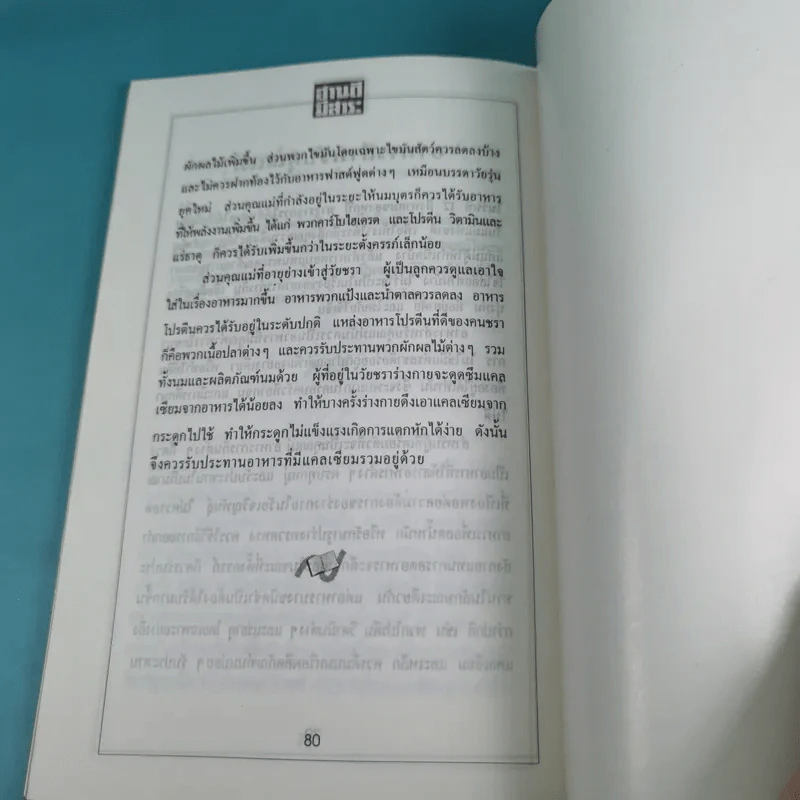 สานติ
มีสาระ
ผักผลไม้เพิ่มขึ้น ส่วนพวกไขมันโดยเฉพาะไขมันสัตว์ควรลดลงบ้าง
และไม่ควรฝากท้องไว้กับอาหารฟาสต์ฟูดต่างๆ เหมือนบรรดาวัยรุ่น
ยุคใหม่ ส่วนคุณแม่ที่กำลังอยู่ในระยะให้นมบุตรก็ควรได้รับอาหาร
ที่ให้พลังงานเพิ่มขึ้น ได้แก่ พวกคาร์โบไฮเดรต และโปรตีน วิตามินและ
แร่ธาตุ ก็ควรได้รับเพิ่มขึ้นกว่าในระยะตั้งครรภ์เล็กน้อย
ส่วนคุณแม่ที่อายุย่างเข้าสู่วัยชรา ผู้เป็นลูกควรดูแลเอาใจ
ใส่ในเรื่องอาหารมากขึ้น อาหารพวกแป้งและน้ำตาลควรลดลง อาหาร
โปรตีนควรได้รับอยู่ในระดับปกติ แหล่งอาหารโปรตีนที่ดีของคนชรา
ก็คือพวกเนื้อปลาต่างๆ และควรรับประทานพวกผักผลไม้ต่างๆ รวม
ทั้งนมและผลิตภัณฑ์นมด้วย ผู้ที่อยู่ในวัยชราร่างกายจะดูดซึมแคล
เซียมจากอาหารได้น้อยลง ทำให้บางครั้งร่างกายดึงเอาแคลเซียมจาก
กระดูกไปใช้ ทำให้กระดูกไม่แข็งแรงเกิดการแตกหักได้ง่าย ดังนั้น
จึงควรรับประทานอาหารที่มีแคลเซียมรวมอยู่ด้วย
80